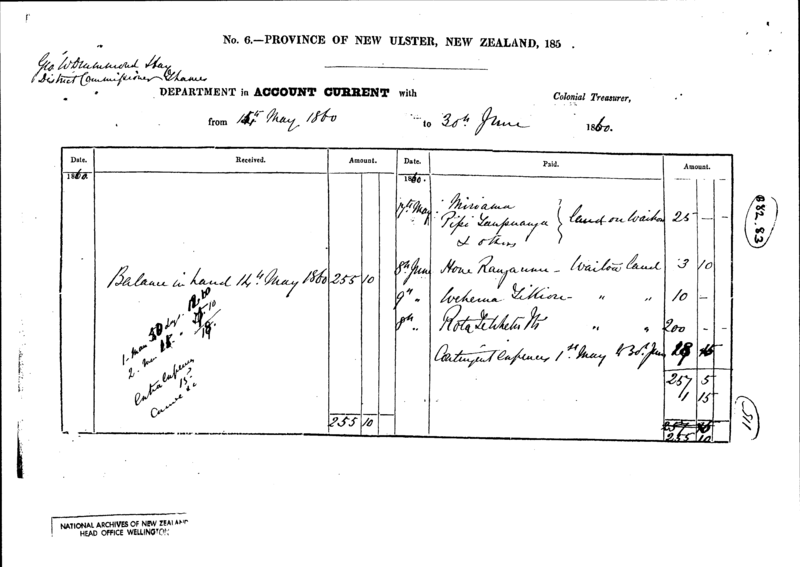 No. 6.—PROVINCE OF NEW ULSTER, NEW ZEALAND, 185 .
Geo W Drummond Hay
District Commissioner Thames
DEPARTMENT in ACCOUNT CURRENT with Colonial Treasurer,
from 15th May 1860 to 30th June 1860.
Date. Received. Amount. Date. Paid. Amount.
1860 1860.
17th May Miriama
Pipi
& others
land on Waitoa 25 — —
Balance in hand 14th May 1860 255 10
8th June Hone — Waitoa land 3 10
9th " " " 10 —
8th " Rota " " 200 - -
Contingent Expenses 1st May to 30th June
257 5
1 15
255 10
255 10
1. man 50 dys.
2. men
Extra Expenses
15
Canoe &c
882.83
511
NATIONAL ARCHIVES OF NEW ZEALAND
HEAD OFFICE WELLINGTON